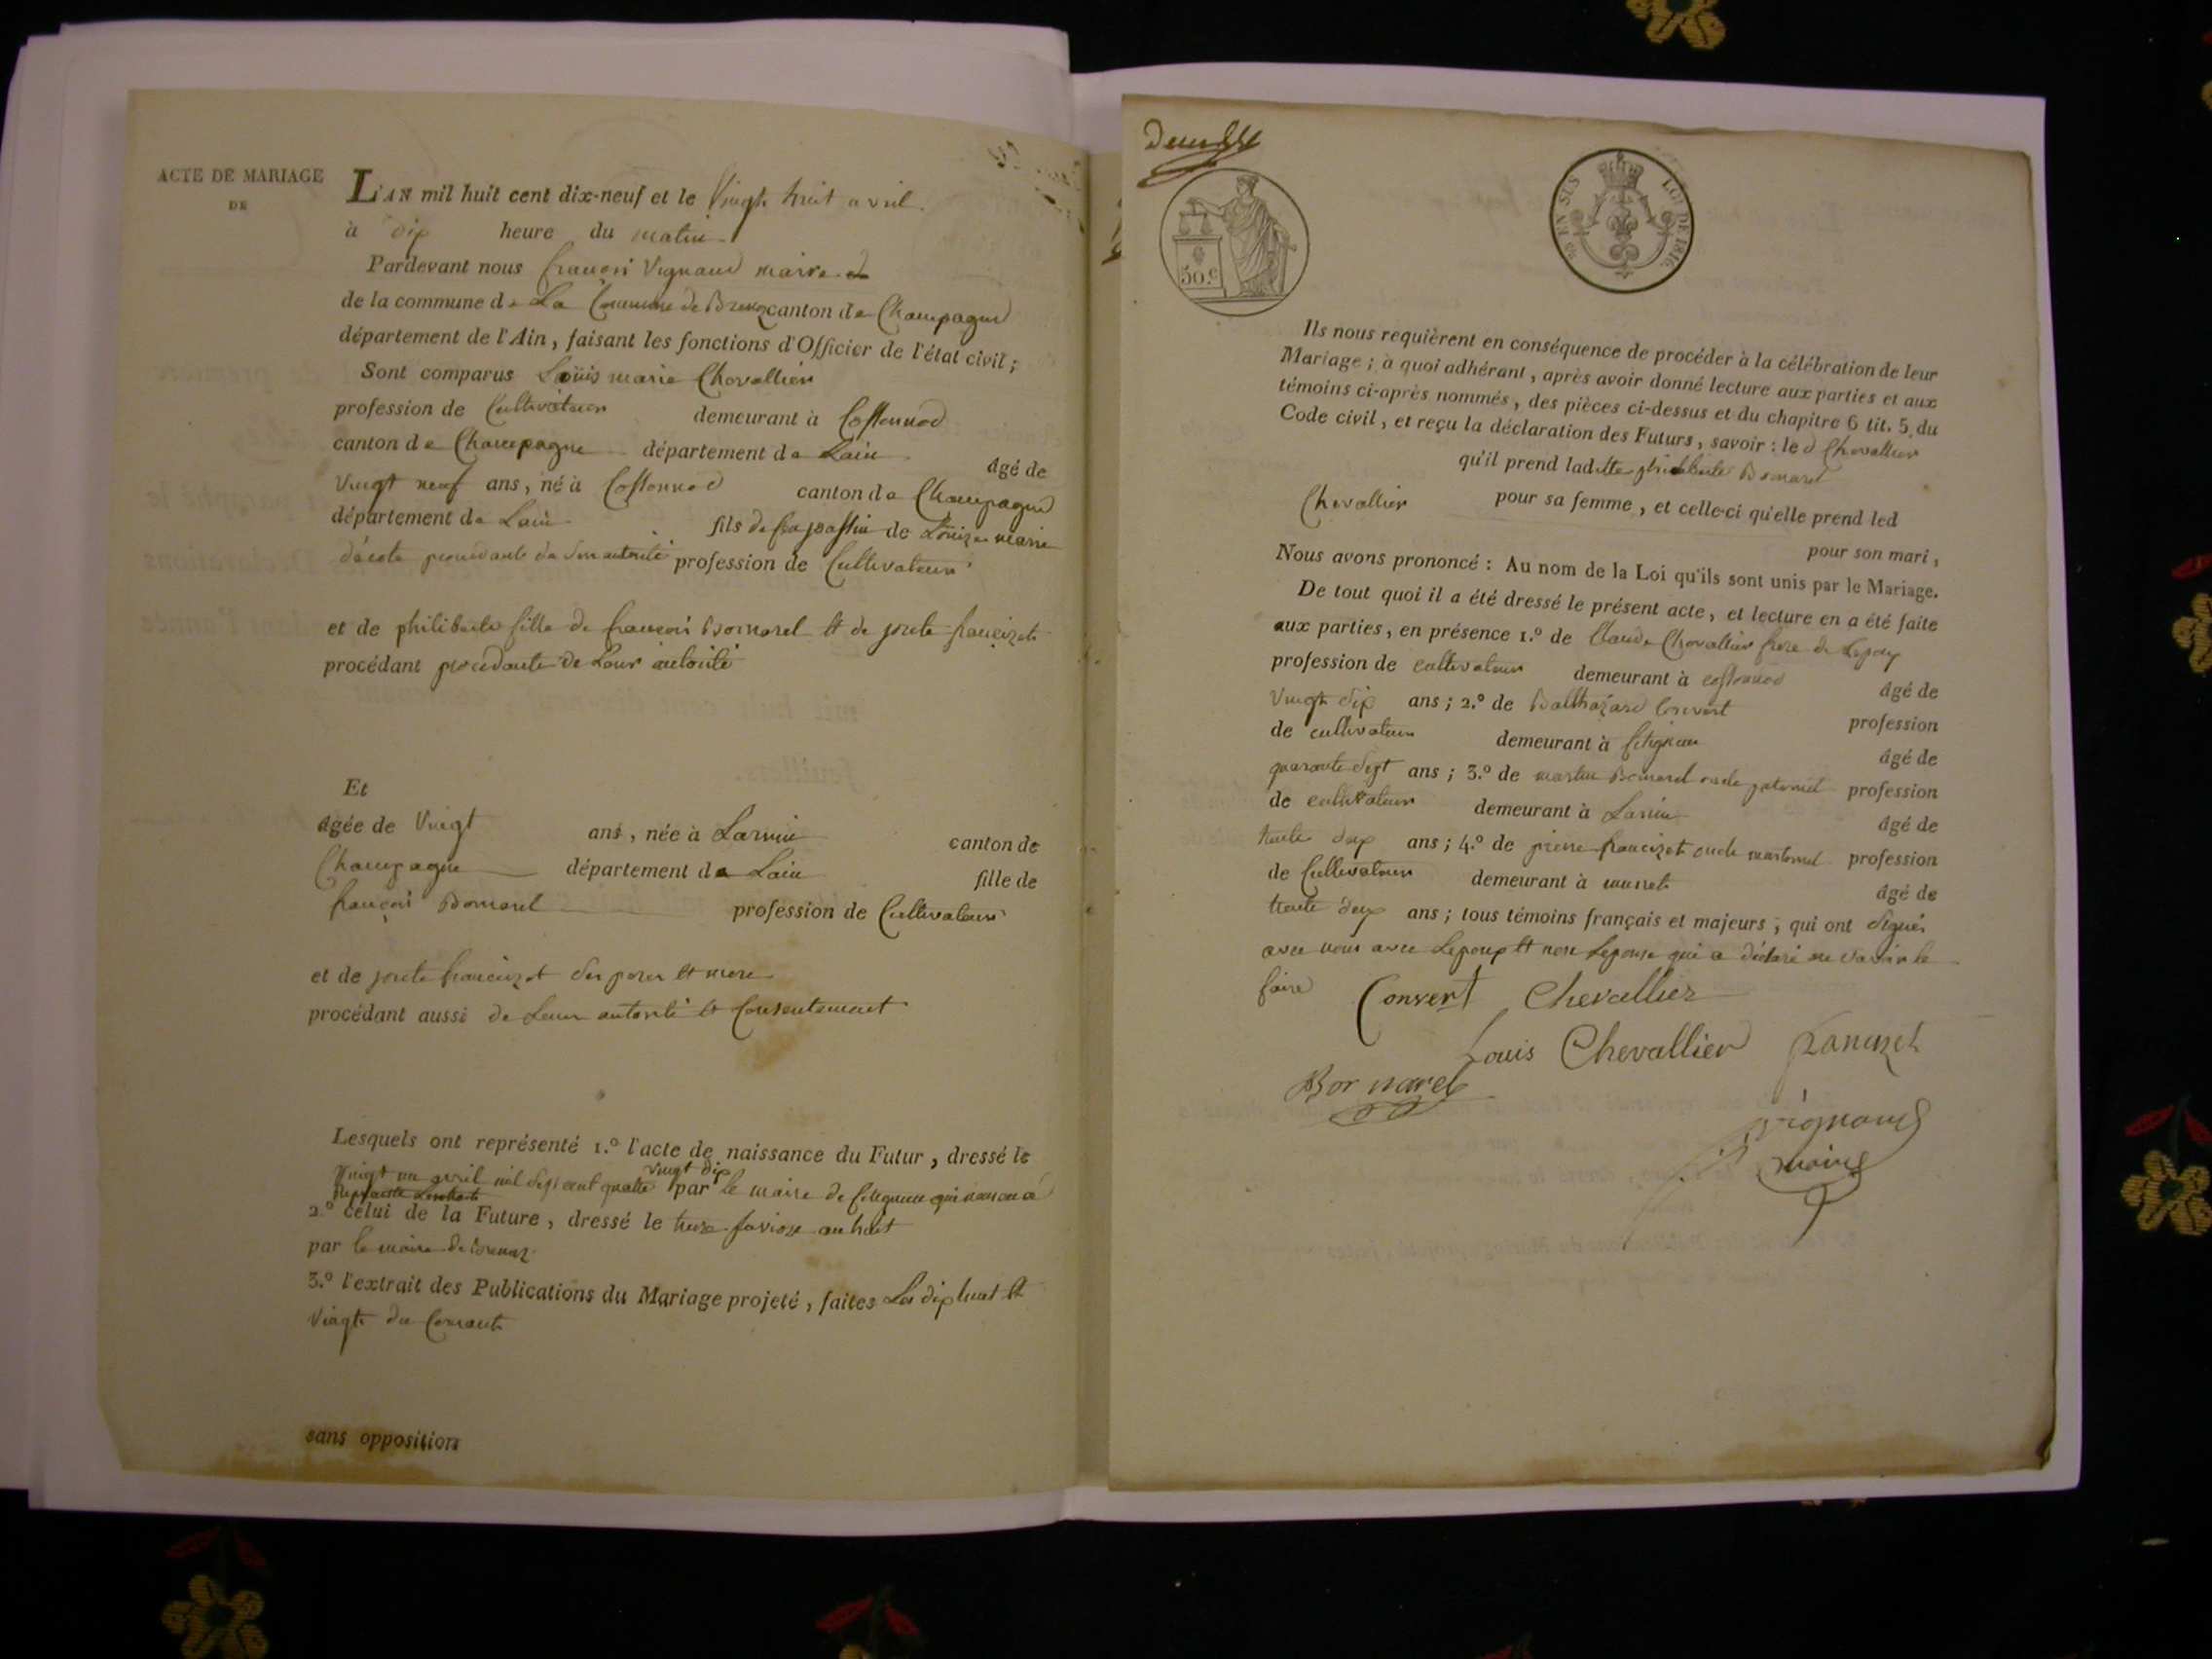 ACTE DE MARIAGE
DE
L'AN mil huit cent dix-neuf et le Vingt huit avril
à dix heure du matin
Pardevant nous françois Vignaud maire
de la commune de La Commune de Brenaz canton de Champagne
département de l'Ain, faisant les fonctions d'Officier de l'état civil;
Sont comparus Loüis marie Chevallier
profession de Cultivateur demeurant à Cossonnod
canton de Champagne département de Lain âgé de
Vingt neuf ans, né à Cossonnod canton de Champagne
département de Lain fils de de Loüize marie
procédante de son autorité profession de Cultivateur
et de philiberte fille de françois Bornarel et de francizet
procédant procédante de Leur autorité
Et
âgée de Vingt ans, née à canton de
Champagne département de Lain fille de
françois Bornarel profession de Cultivateur
et de francizet ses père et mere
procédant aussi de Leur autorité et Consentement
Lesquels ont représenté 1.º l'acte de naissance du Futur, dressé le
vingt dix
Vingt un avril mil sept cent quatre par le maire de
2.º celui de la Future, dressé le an huit
par le maire de Brenaz
3.º l'extrait des Publications du Mariage projeté, faites Les dix huit et
Vingt du Courant
sans opposition
50.c
EN SUS LOI DE 1816.
Ils nous requièrent en conséquence de procéder à la célébration de leur
Mariage; à quoi adhérant, après avoir donné lecture aux parties et aux
témoins ci-après nommés, des pièces ci-dessus et du chapitre 6 tit. 5, du
Code civil, et reçu la déclaration des Futurs, savoir: le d Chevallier
qu'il prend ladite philiberte Bornarel
pour sa femme, et celle-ci qu'elle prend led
Chevallier pour son mari,
Nous avons prononcé: Au nom de la Loi qu'ils sont unis par le Mariage.
De tout quoi il a été dressé le présent acte, et lecture en a été faite
aux parties, en présence 1.º de Claude Chevallier frere de Lepoux
profession de cultivateur demeurant à cossonnod âgé de
Vingt dix ans; 2.º de Balthazard Convert profession
de cultivateur demeurant à âgé de
quarante sept ans; 3.º de martin Bornarel oncle paternel profession
de cultivateur demeurant à âgé de
trente deux ans; 4.º de pierre francizet oncle maternel profession
de Cultivateur demeurant à munet âgé de
trente deux ans; tous témoins français et majeurs, qui ont signés
avec nous avec Lepoux et non Lepouse qui a déclaré ne savoir le
faire
Convert Chevallier
Louis Chevallier francizet
Bornarel
Vignaud
maire